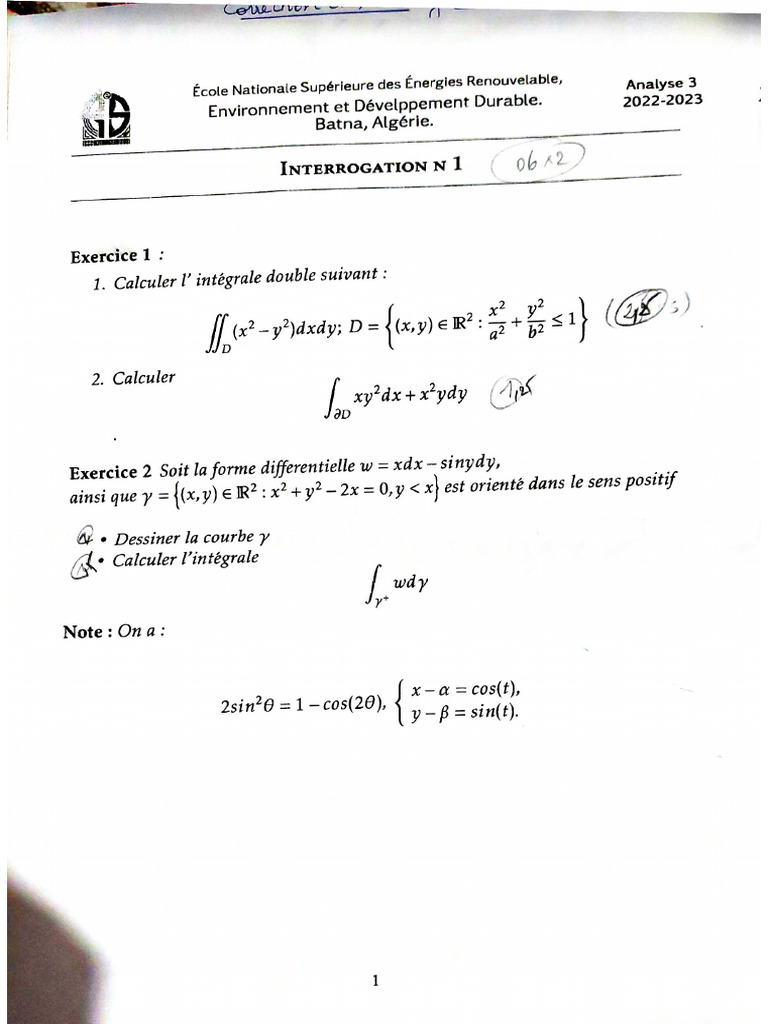 École Nationale Supérieure des Énergies Renouvelable,
Environnement et Dévelppement Durable.
Batna, Algérie.
Analyse 3
2022-2023
INTERROGATION N 1
06 × 2
Exercice 1 :
1. Calculer l' intégrale double suivant :
∬_D (x² − y²)dxdy; D = {(x,y) ∈ ℝ² : x²/a² + y²/b² ≤ 1}
2. Calculer
∫_∂D xy²dx + x²ydy
Exercice 2 Soit la forme differentielle w = xdx − sinydy,
ainsi que γ = {(x,y) ∈ ℝ² : x² + y² − 2x = 0, y < x} est orienté dans le sens positif
• Dessiner la courbe γ
• Calculer l'intégrale
∫_γ⁺ wdγ
Note : On a :
2sin²θ = 1 − cos(2θ), { x − α = cos(t),
y − β = sin(t).
1